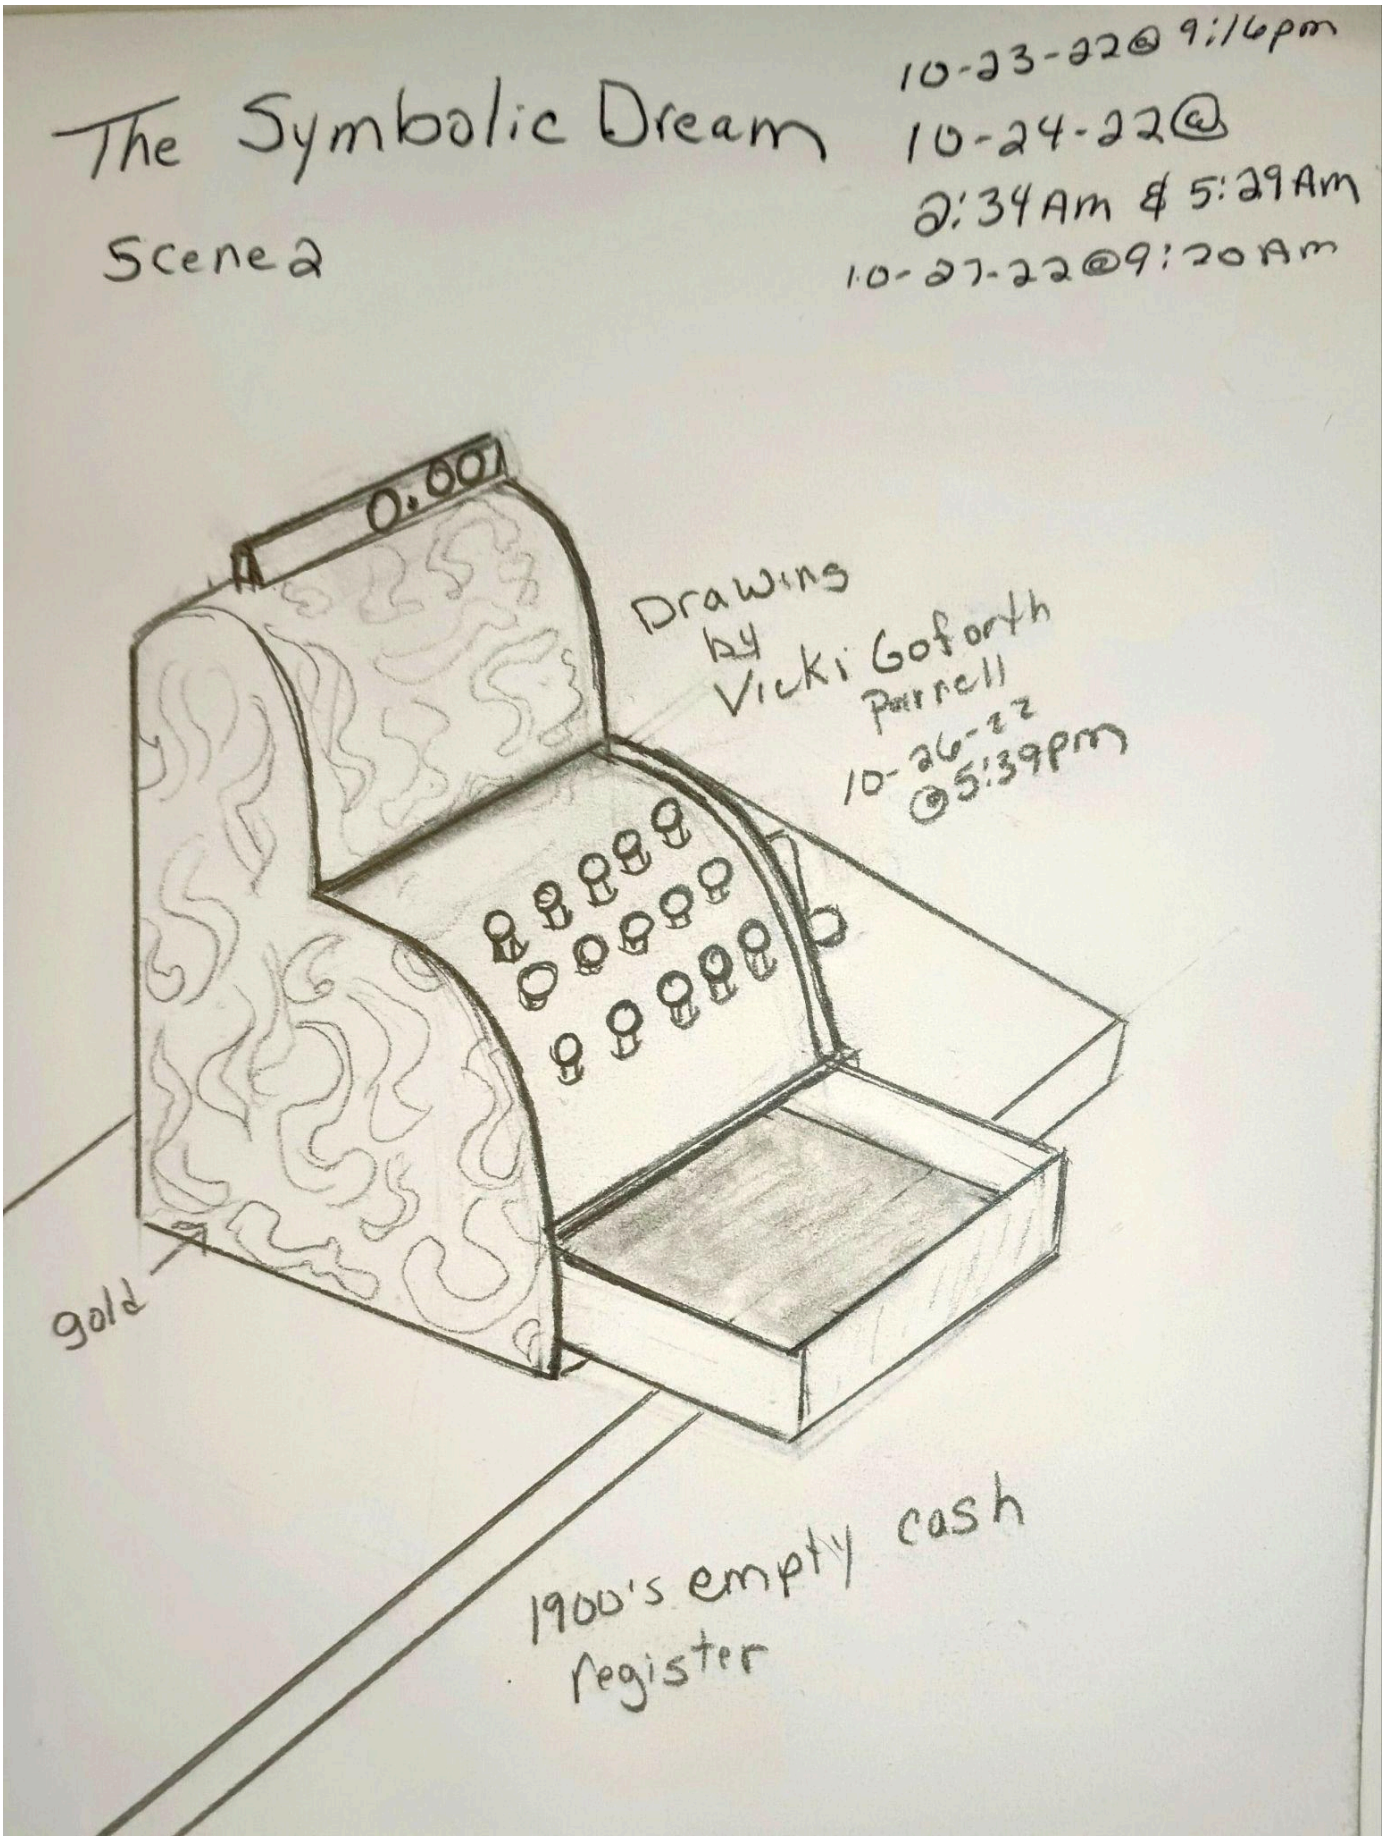 The Symbolic Dream
Scene 2
10-23-22@ 9:16pm
10-24-22@
2:34Am & 5:29Am
10-27-22@9:20Am
0.00
Drawing
by
Vicki Goforth
Parnell
10-26-22
@5:39pm
gold
1900's empty cash
register